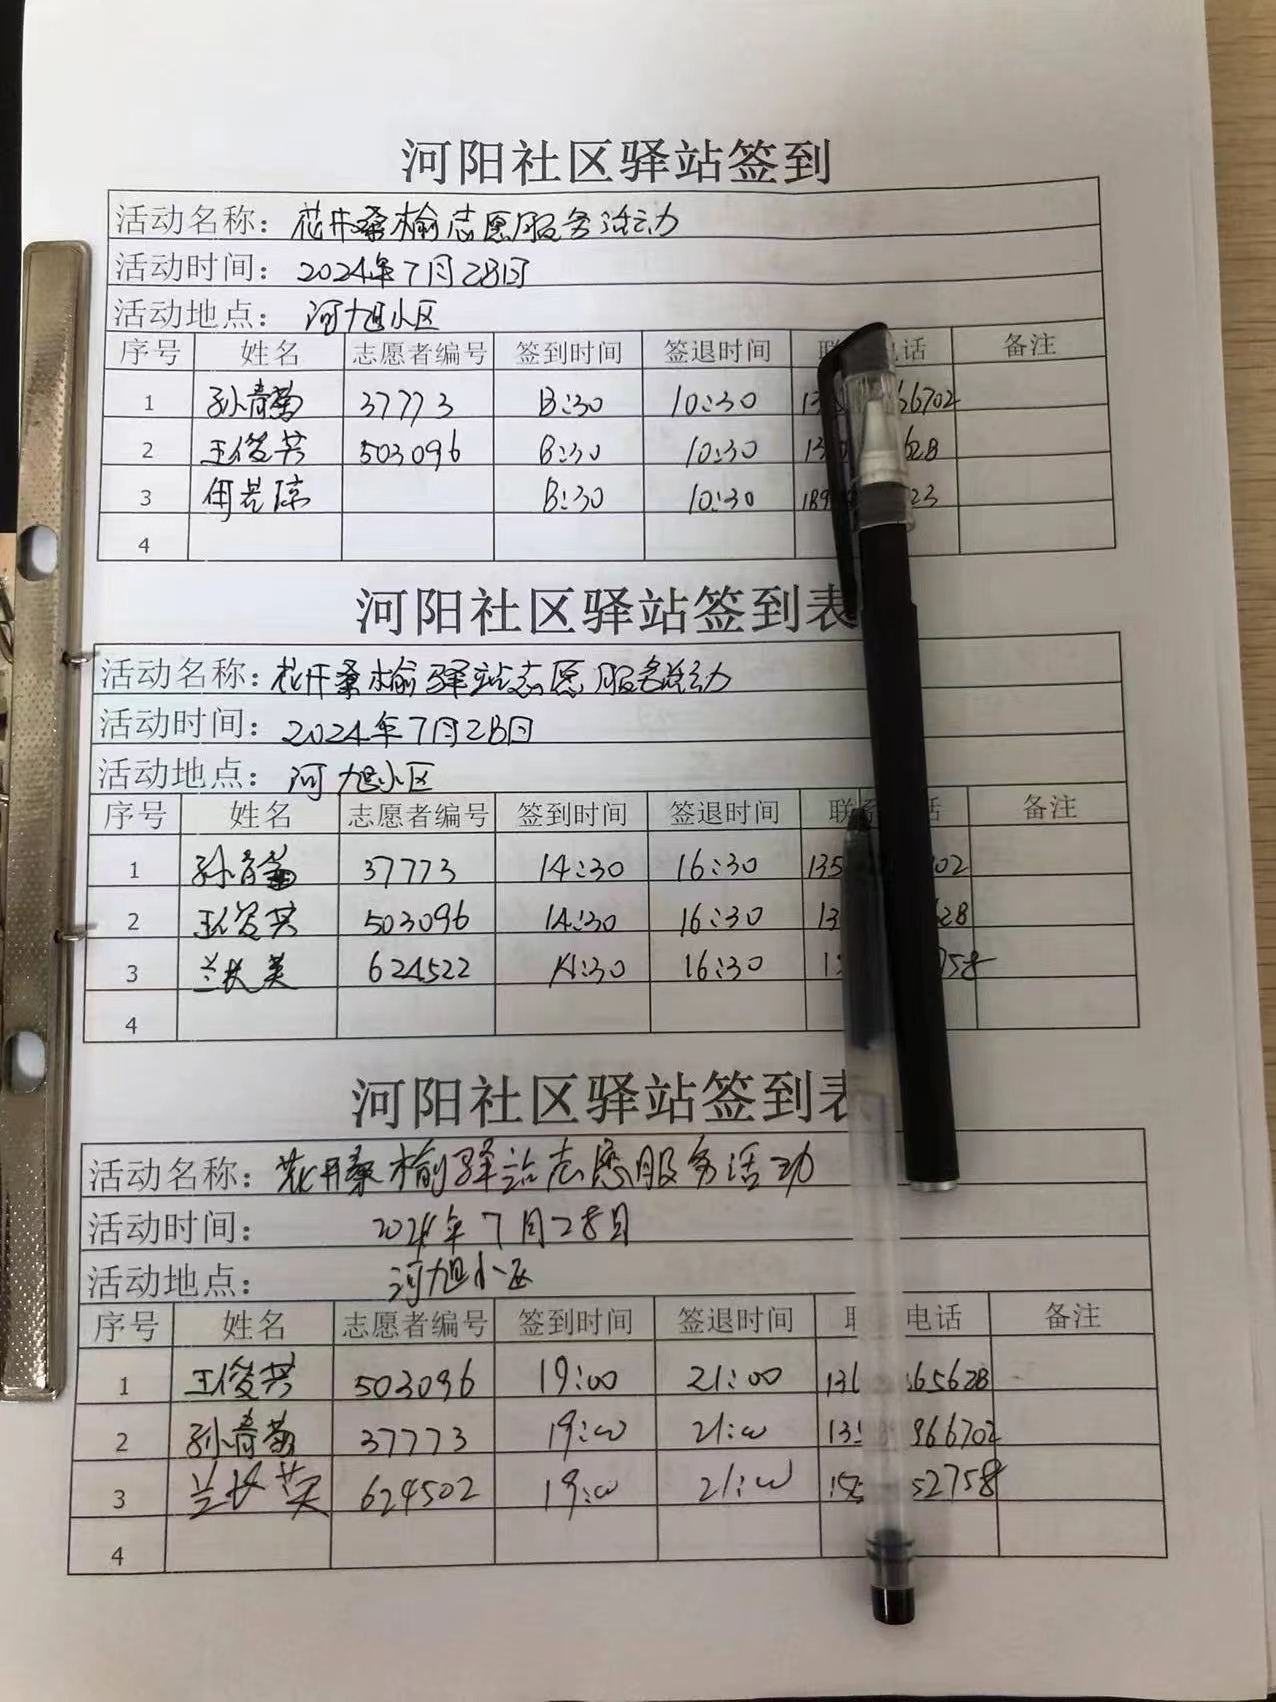 河阳社区驿站签到
活动名称：花开桑榆志愿服务活动
活动时间：2024年7月28日
活动地点：河旭小区
序号 姓名 志愿者编号 签到时间 签退时间 电话 备注
1 孙青菊 37773 8:30 10:30 66702
2 王俊芳 503096 8:30 10:30 628
3 8:30 10:30 189 23
4
河阳社区驿站签到表
活动名称：花开桑榆驿站志愿服务活动
活动时间：2024年7月28日
活动地点：河旭小区
序号 姓名 志愿者编号 签到时间 签退时间 联 话 备注
1 孙青菊 37773 14:30 16:30 135 02
2 王俊芳 503096 14:30 16:30 13 628
3 兰长英 624522 14:30 16:30 758
4
河阳社区驿站签到表
活动名称：花开桑榆驿站志愿服务活动
活动时间：2024年7月28日
活动地点：河旭小区
序号 姓名 志愿者编号 签到时间 签退时间 电话 备注
1 王俊芳 503096 19:00 21:00 136 65628
2 孙青菊 37773 19:00 21:00 13 966702
3 兰长英 624502 19:00 21:00 52758
4